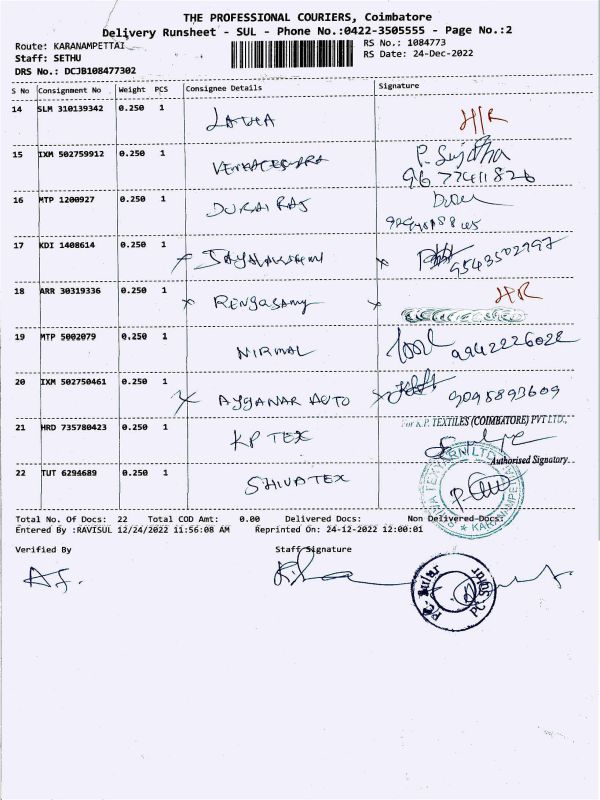 THE PROFESSIONAL COURIERS, Coimbatore
Delivery Runsheet - SUL - Phone No.:0422-3505555 - Page No.:2
Route: KARANAMPETTAI RS No.: 1084773
Staff: SETHU RS Date: 24-Dec-2022
DRS No.: DCJB108477302
S No Consignment No Weight PCS Consignee Details Signature
14 SLM 310139342 0.250 1 LATHA H/R
15 IXM 502759912 0.250 1 P. Sujitha
16 MTP 1200927 0.250 1 DURAI RAJ
17 KDI 1408614 0.250 1 JAYALAKSHMI 9543502797
18 ARR 30319336 0.250 1 Rengasamy H/R
19 MTP 5002079 0.250 1 NIRMAL 9942226022
20 IXM 502750461 0.250 1 AYYANAR AUTO 9095893609
21 HRD 735780423 0.250 1 KP TEX For K.P. TEXTILES (COIMBATORE) PVT LTD.,
Authorised Signatory
22 TUT 6294689 0.250 1 SHIVA TEX
Total No. Of Docs: 22 Total COD Amt: 0.00 Delivered Docs: Non Delivered Docs:
Entered By :RAVISUL 12/24/2022 11:56:08 AM Reprinted On: 24-12-2022 12:00:01
Verified By Staff Signature